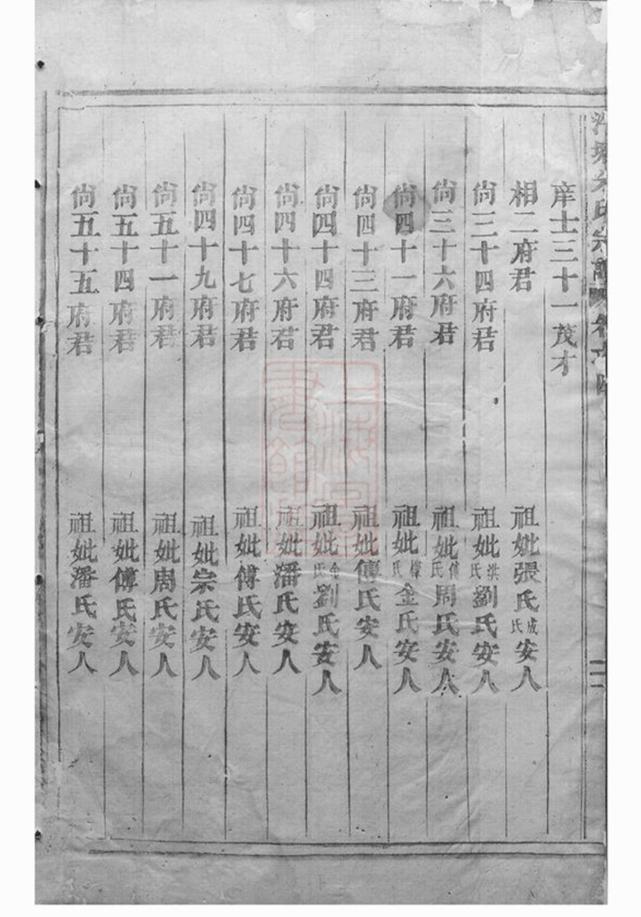 庠士三十一茂才
相二府君 祖妣張氏成氏安人
尙三十四府君 祖妣洪氏劉氏安人
尙三十六府君 祖妣傅氏周氏安人
尙四十一府君 祖妣樓氏金氏安人
尙四十三府君 祖妣傅氏安人
尙四十四府君 祖妣金氏劉氏安人
尙四十六府君 祖妣潘氏安人
尙四十七府君 祖妣傅氏安人
尙四十九府君 祖妣宗氏安人
尙五十一府君 祖妣周氏安人
尙五十四府君 祖妣傅氏安人
尙五十五府君 祖妣潘氏安人